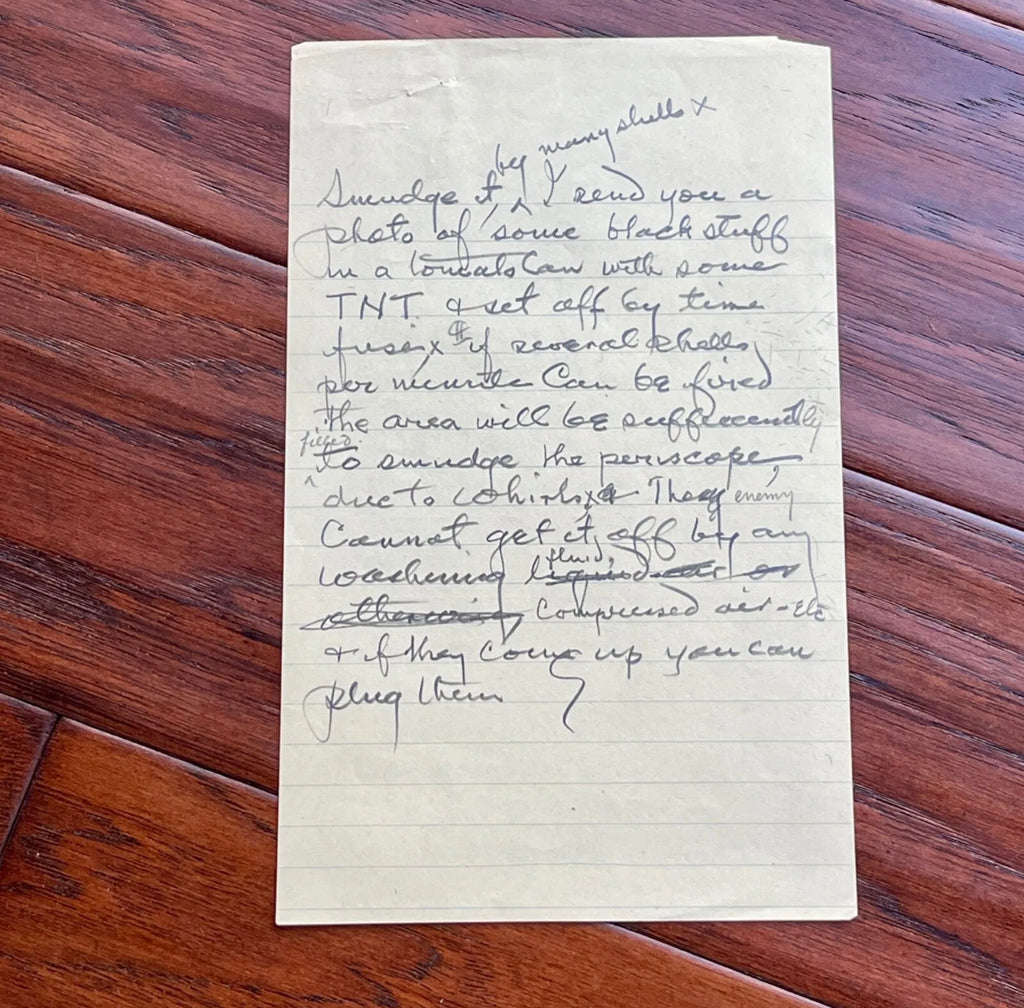 by many shells x
Smudge it, ^ I send you a
photo of some black stuff
in a tomato Can with some
TNT. & set off by time
fuse x & if several shells
per minute Can be fired
the area will be sufficiently
filled
^ to smudge the periscope,
due to whirls x & They enemy
Cannot get it off by any
fluid,
washing liquid air or
otherwise compressed air - etc
& if they come up you can
plug them